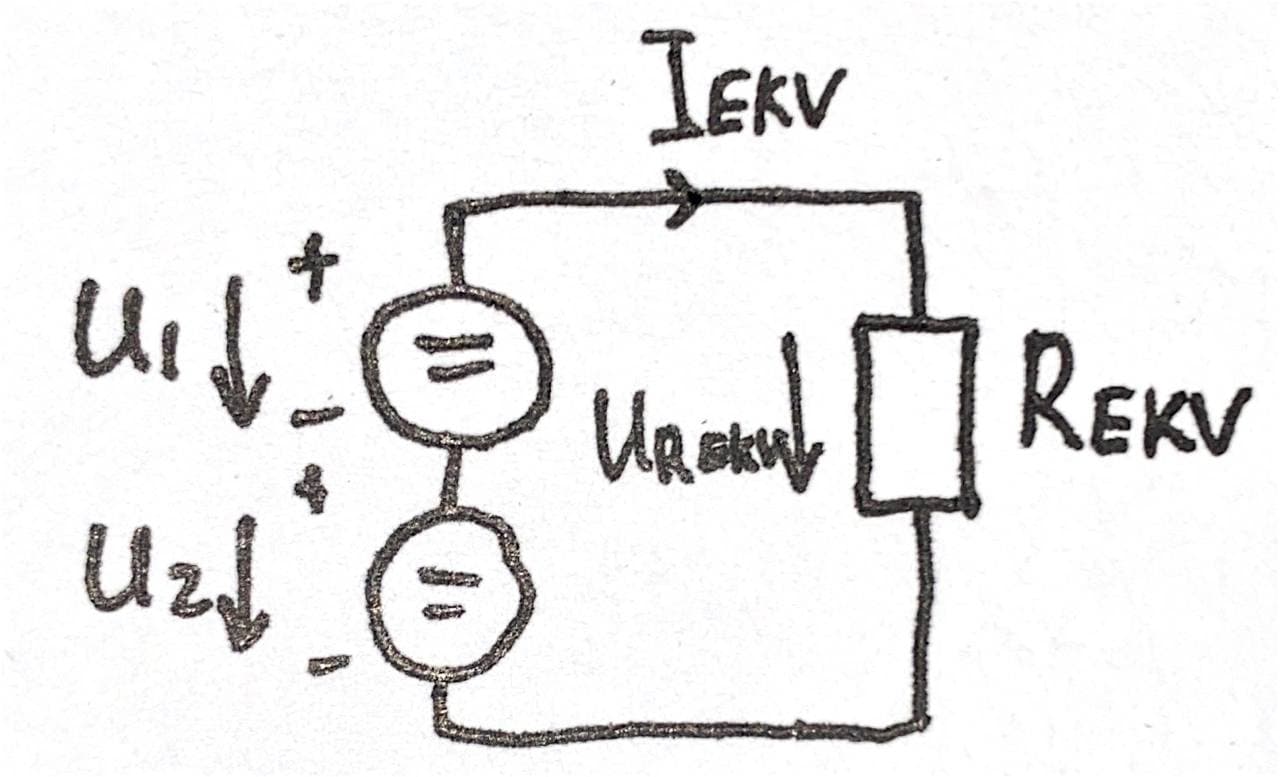 IEKV
+
U1
-
UREKV
REKV
+
U2
-